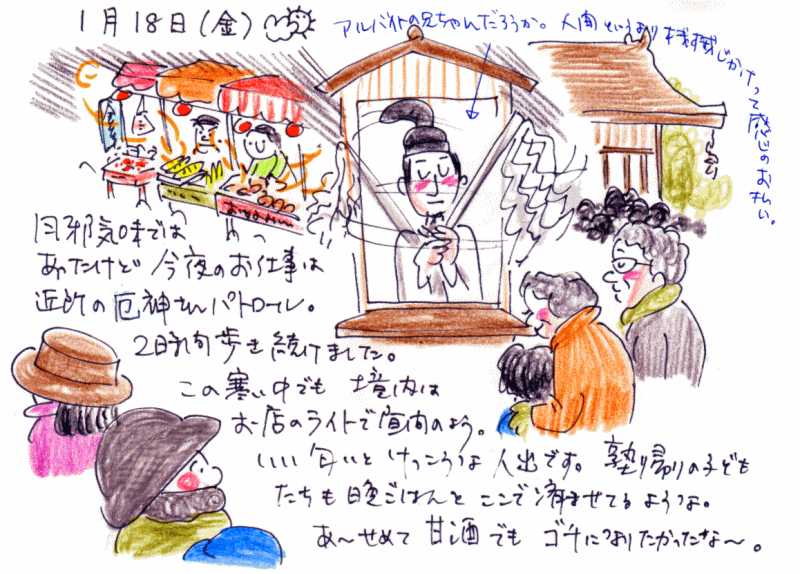 1月18日(金)
アルバイトの兄ちゃんだろうか。人間というより機械じかけって感じのお払い。
風邪気味では
あったけど 今夜のお仕事は
近所の厄神さんパトロール。
2時間歩き続けました。
この寒い中でも 境内は
お店のライトで昼間のよう。
いい匂いと けっこうな 人出です。塾帰りの子ども
たちも 晩ごはんを ここで 済ませてるようよ。
あ〜せめて 甘酒でも ゴチになりたかったな〜。